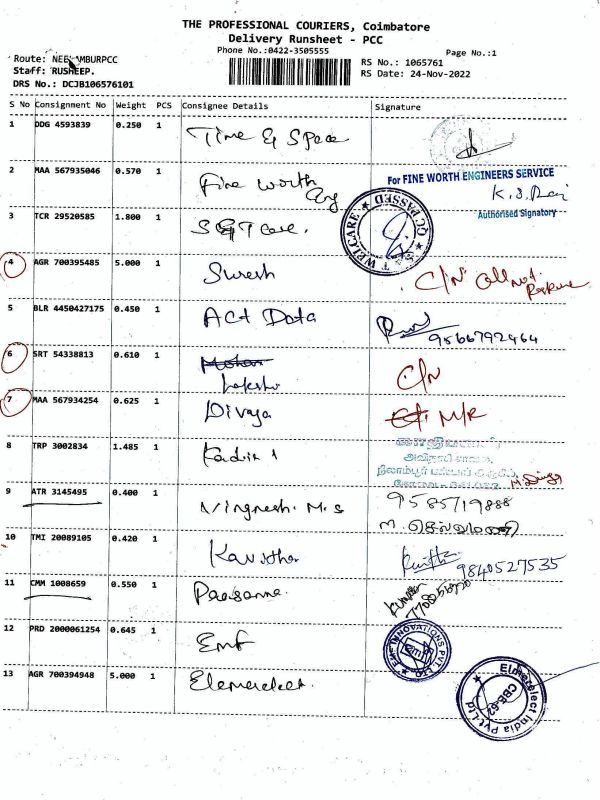 THE PROFESSIONAL COURIERS, Coimbatore
Delivery Runsheet - PCC
Phone No.:0422-3505555
Page No.:1
Route: NEELAMBURPCC
RS No.: 1065761
Staff: RUSHEEP.
RS Date: 24-Nov-2022
DRS No.: DCJB106576101
S No Consignment No Weight PCS Consignee Details Signature
1 DDG 4593839 0.250 1 Time & Space
2 MAA 567935046 0.570 1 Fine worth Eng
For FINE WORTH ENGINEERS SERVICE
Authorised Signatory
3 TCR 29520585 1.800 1 S&T care.
S & T WELCARE QC PASSED
4 AGR 700395485 5.000 1 Suresh C/N Call Not Response
5 BLR 4450427175 0.450 1 Act Data 9566792464
6 SRT 54338813 0.610 1 Mohan C/N
7 MAA 567934254 0.625 1 Divaya N/R
8 TRP 3002834 1.485 1
9 ATR 3145495 0.400 1 Vingnesh. M.S 9585719888
10 TMI 20089105 0.420 1 Kavitha 9840527535
11 CMM 1008659 0.550 1
12 PRD 2000061254 0.645 1 Emf
EMF INNOVATIONS PVT LTD
13 AGR 700394948 5.000 1
Elmerelect India Pvt Ltd
CBE-62